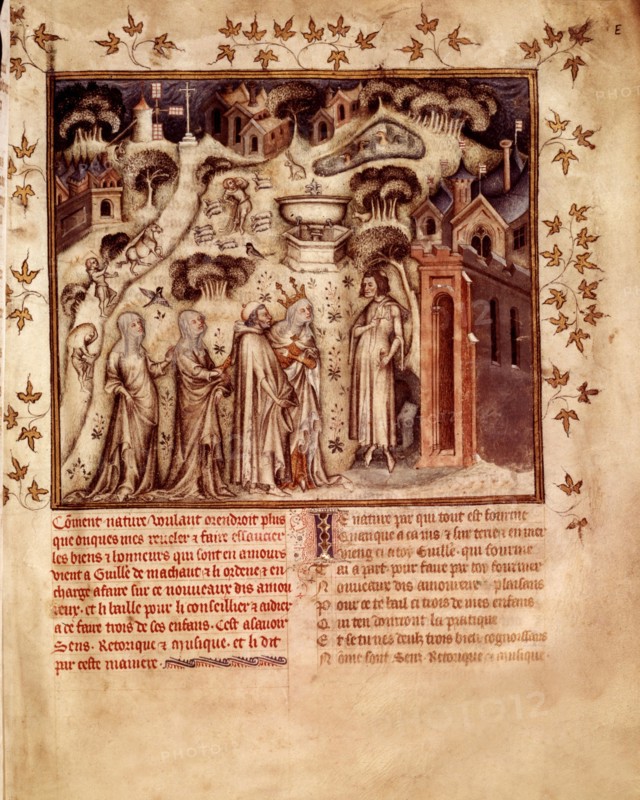 E
Coment nature voulant orendroit plus
que onques mes reveler et faire essaucier
les biens et honneurs qui sont en amours
vient a Guille de machaut et li ordene et en
charge a faire sur ce nouveaux dis amou
reux. et li baille pour li conseillier et aidier
a ce faire trois de ses enfans. Cest asavoir
Sens. Retorique et musique. et li dit
par ceste maniere.
Ie nature par qui tout est fourme
quanque a ca ius et sur terre et en mer
vieng ci a toy Guille. qui fourme
tai a part pour faire par toy fourmer
Nouveaux dis amoureux plaisans
Pour ce te bail ci trois de mes enfans
Qui ten donront la pratique
Et se tu nes deulz trois bien cognoissans
Nome sont Sens Retorique et musique.
PHOTO12